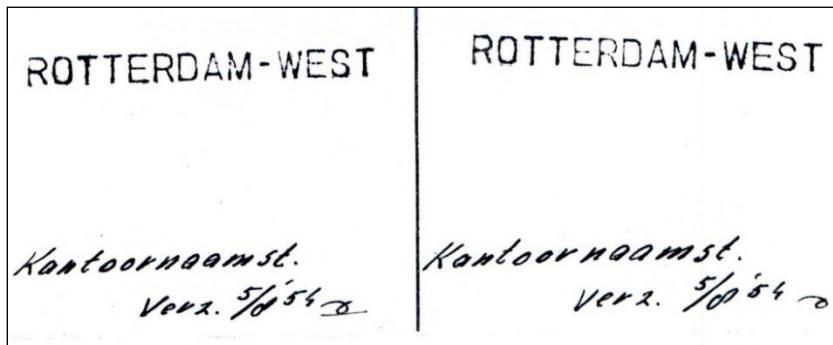 ROTTERDAM-WEST
Kantoornaamst.
Verz. 5/8 '54
ROTTERDAM-WEST
Kantoornaamst.
Verz. 5/8 '54